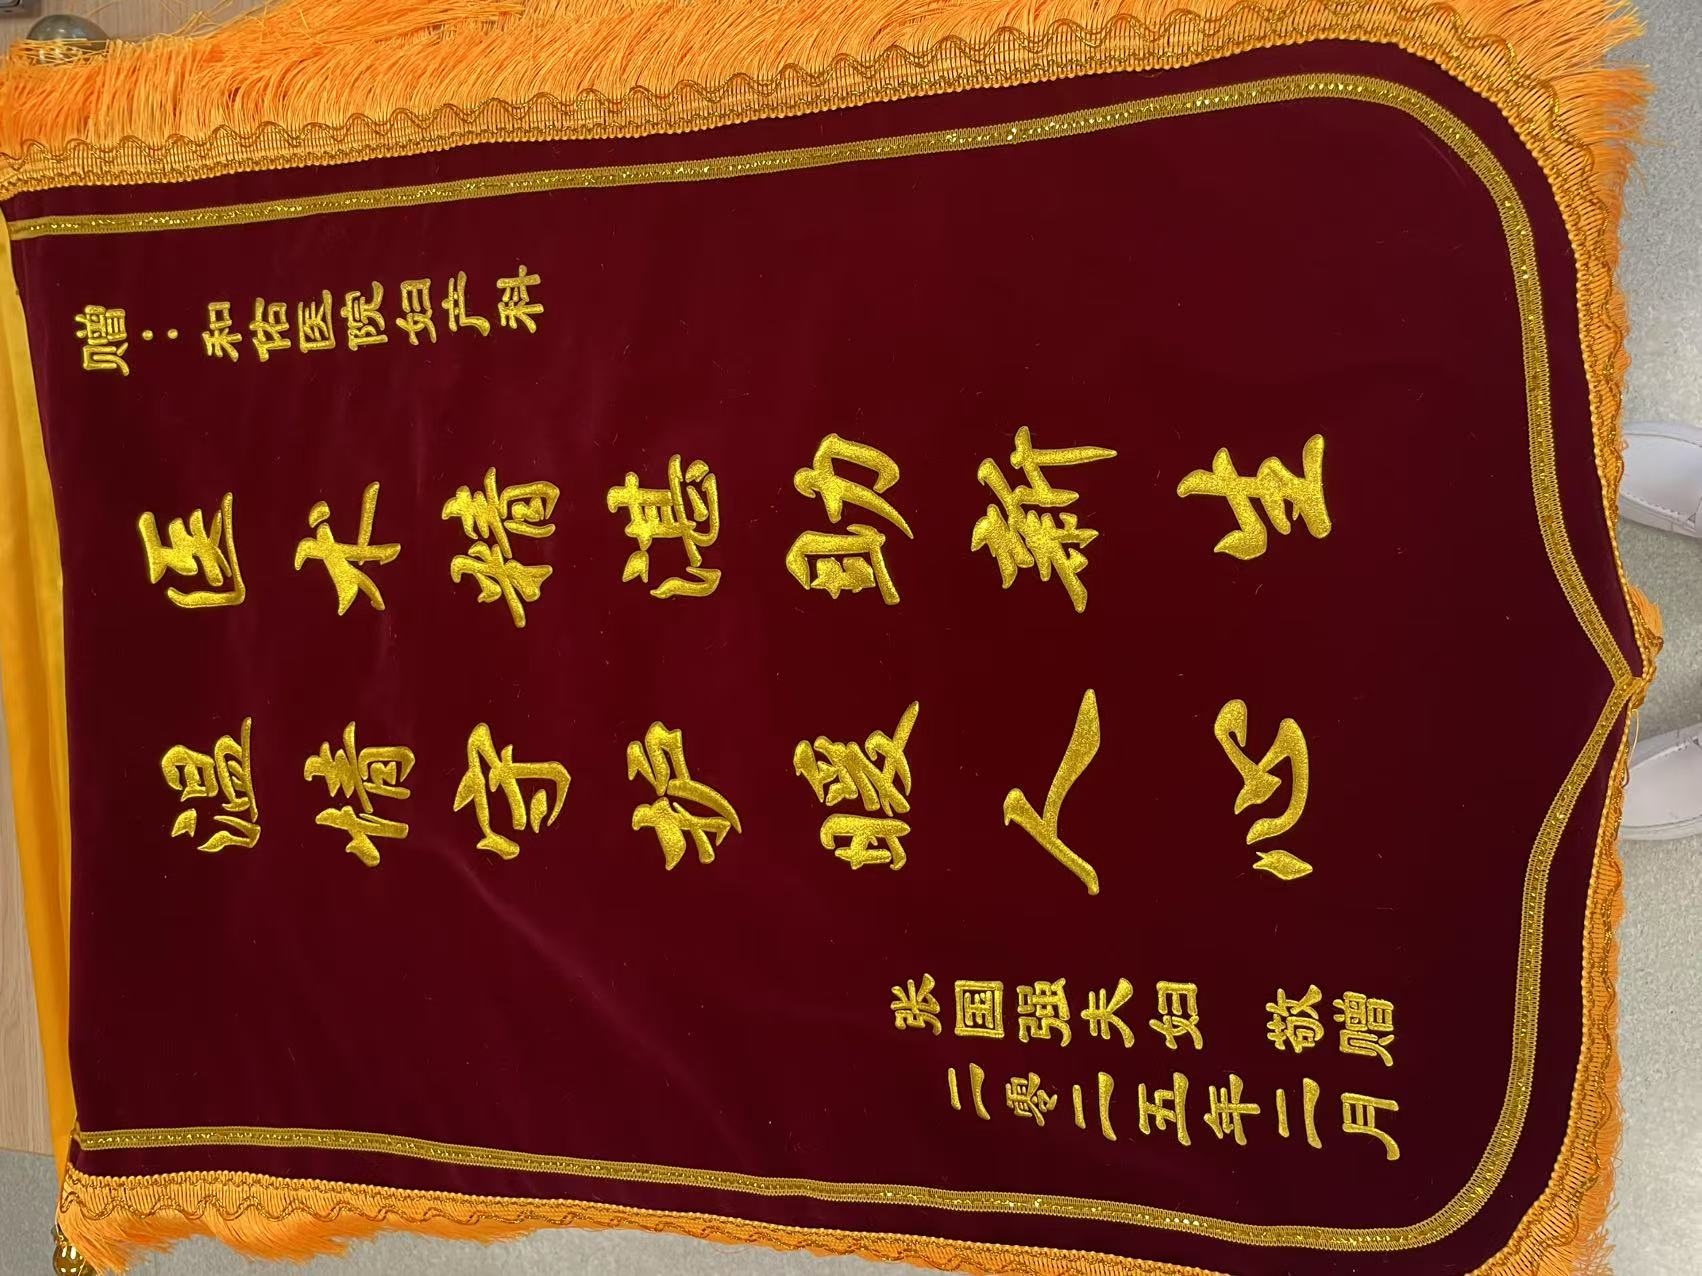 赠：和佑医院妇产科
医术精湛助新生
温情守护暖人心
张国强夫妇 敬赠
二零二五年二月